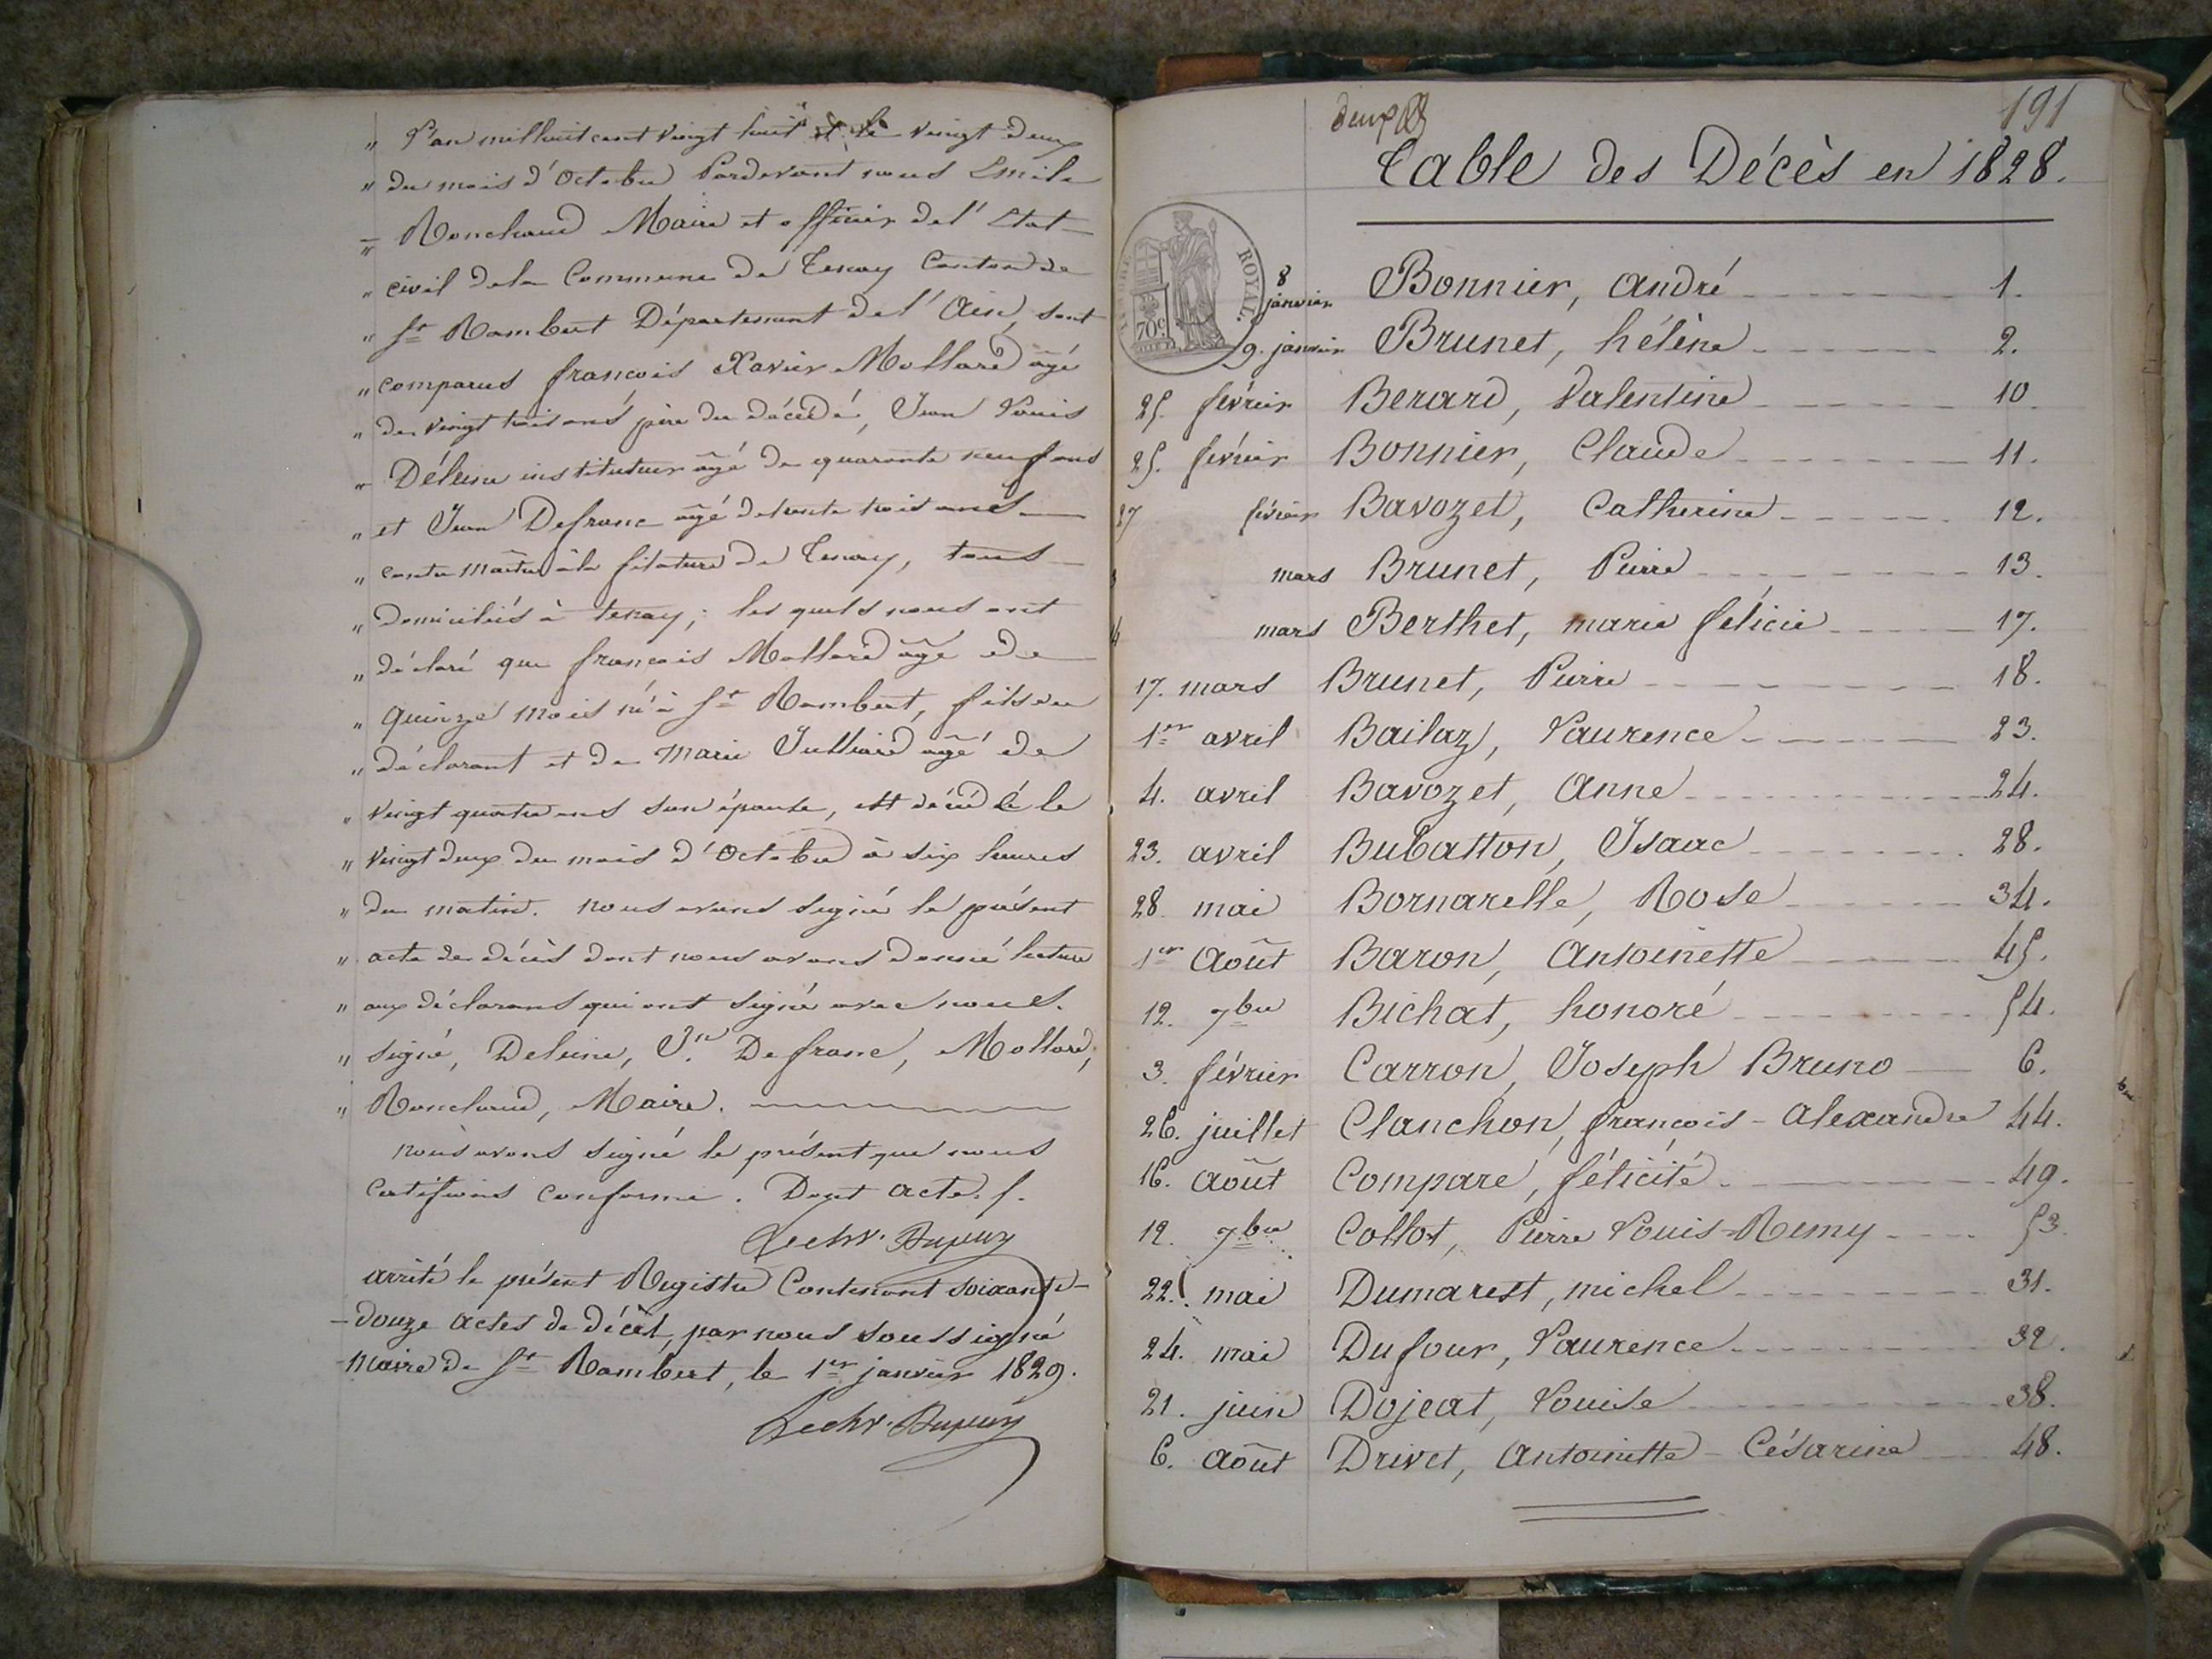 " L'an mil huit cent vingt huit et le vingt deux
" du mois d'Octobre Pardevant nous Emile
" Ronchaud Maire et officier de l'Etat-
" civil de la Commune de Tenay Canton de
" St Rambert Département de l'Ain, sont
" comparus françois Xavier Mollard âgé
" de vingt trois ans père du décédé, Jean Louis
" Déleuse instituteur âgé de quarante neuf ans
" et Jean Defranc âgé de trente trois ans
" contre maître à la filature de Tenay, tous
" domiciliés à tenay; les quels nous ont
" déclaré que françois Mollard âgé de
" quinze mois né à St Rambert, fils du
" déclarant et de Marie Julliard âgé de
" vingt quatre ans son épouse, est décédé le
" vingt deux du mois d'Octobre à six heures
" du matin. nous avons signé le présent
" acte de décès dont nous avons donné lecture
" aux déclarans qui ont signé avec nous.
" signé, Jn Defranc, Mollard,
" Ronchaud, Maire.
nous avons signé le présent que nous
Certifions conforme. Dont acte.
arrêté le présent Registre Contenant soixante-
-douze actes de décès, par nous soussigné
Maire de St Rambert, le 1er janvier 1829.
191
Table des Décès en 1828.
ROYAL.
70c
8 janvier Bonnier, André 1.
9. janvier Brunet, hélène 2.
25. février Berard, Valentine 10.
25. février Bonnier, Claude 11.
27 février Bavozet, Catherine 12.
mars Brunet, Pierre 13.
mars Berthet, marie félicie 17.
17. mars Brunet, Pierre 18.
1er avril Bailaz, Laurence 23.
4. avril Bavozet, Anne 24.
23. avril Bubatton, Isaac 28.
28. mai Bornarelle, Rose 34.
1er Août Baron, Antoinette 45.
12. 7bre Bichat, honoré 54.
3. février Carron, Joseph Bruno 6.
26. juillet Clanchon, françois-Alexandre 44.
16. Août Comparé, félicité 49.
12. 7bre Collot, Pierre Louis-Remy 53.
22. mai Dumarest, michel 31.
24. mai Dufour, Laurence 32.
21. juin Dojeat, Louise 38.
6. Août Drivet, Antoinette-Césarine 48.